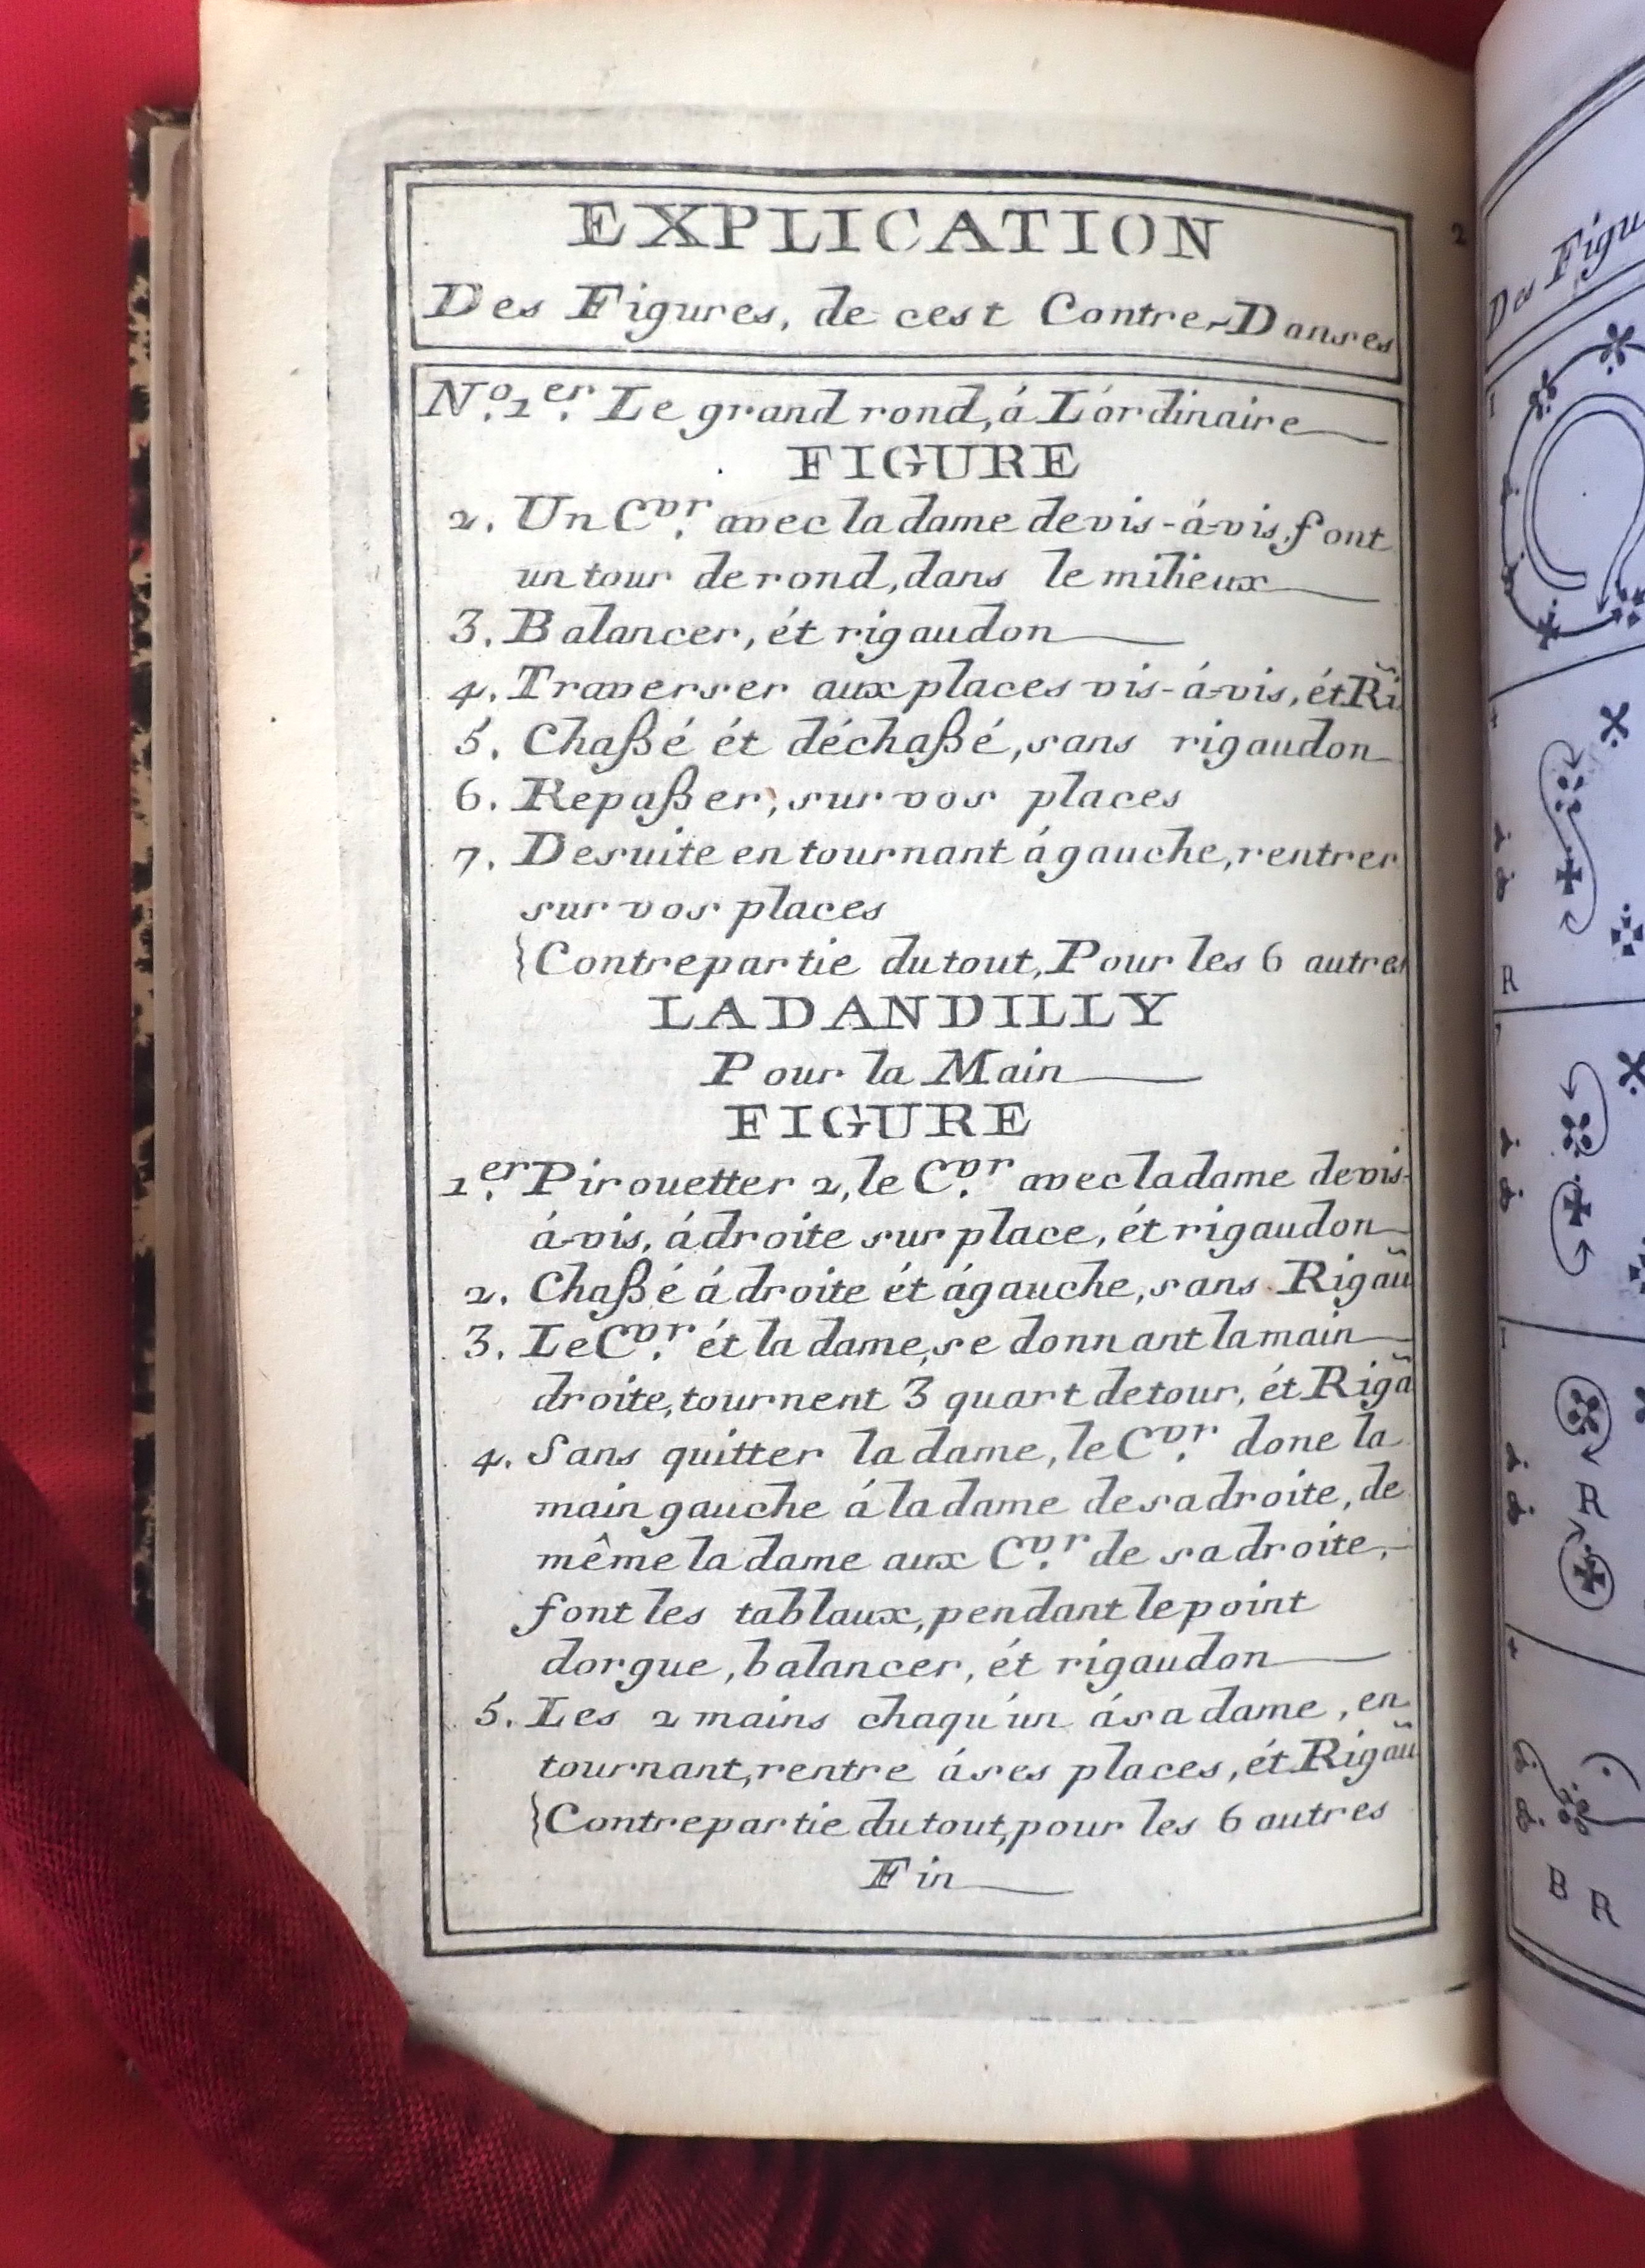 EXPLICATION
Des Figures, de cest Contre-Danses
N.º 1.er Le grand rond, á L'ordinaire
FIGURE
2. Un C.vr avec la dame de vis-á-vis, font
un tour de rond, dans le milieux
3. Balancer, ét rigaudon
4. Traverser aux places vis-á-vis, ét Ri
5. Chaßé ét déchaßé, sans rigaudon
6. Repaßer, sur vos places
7. De suite en tournant á gauche, rentrer
sur vos places
{Contrepartie du tout, Pour les 6 autres
LADANDILLY
Pour la Main
FIGURE
1.er Pirouetter 2, le C.vr avec la dame de vis-
á-vis, á droite sur place, ét rigaudon
2. Chaßé á droite ét á gauche, sans Rigau
3. Le C.vr ét la dame, se donnant la main
droite, tournent 3 quart de tour, ét Riga
4. Sans quitter la dame, le C.vr done la
main gauche á la dame de sa droite, de
même la dame aux C.vr de sa droite,
font les tablaux, pendant le point
dorgue, balancer, ét rigaudon
5. Les 2 mains chaqu'un á sa dame, en
tournant, rentre á ses places, ét Rigau
{Contrepartie du tout, pour les 6 autres
Fin
2
Des Figu
R
R
B R